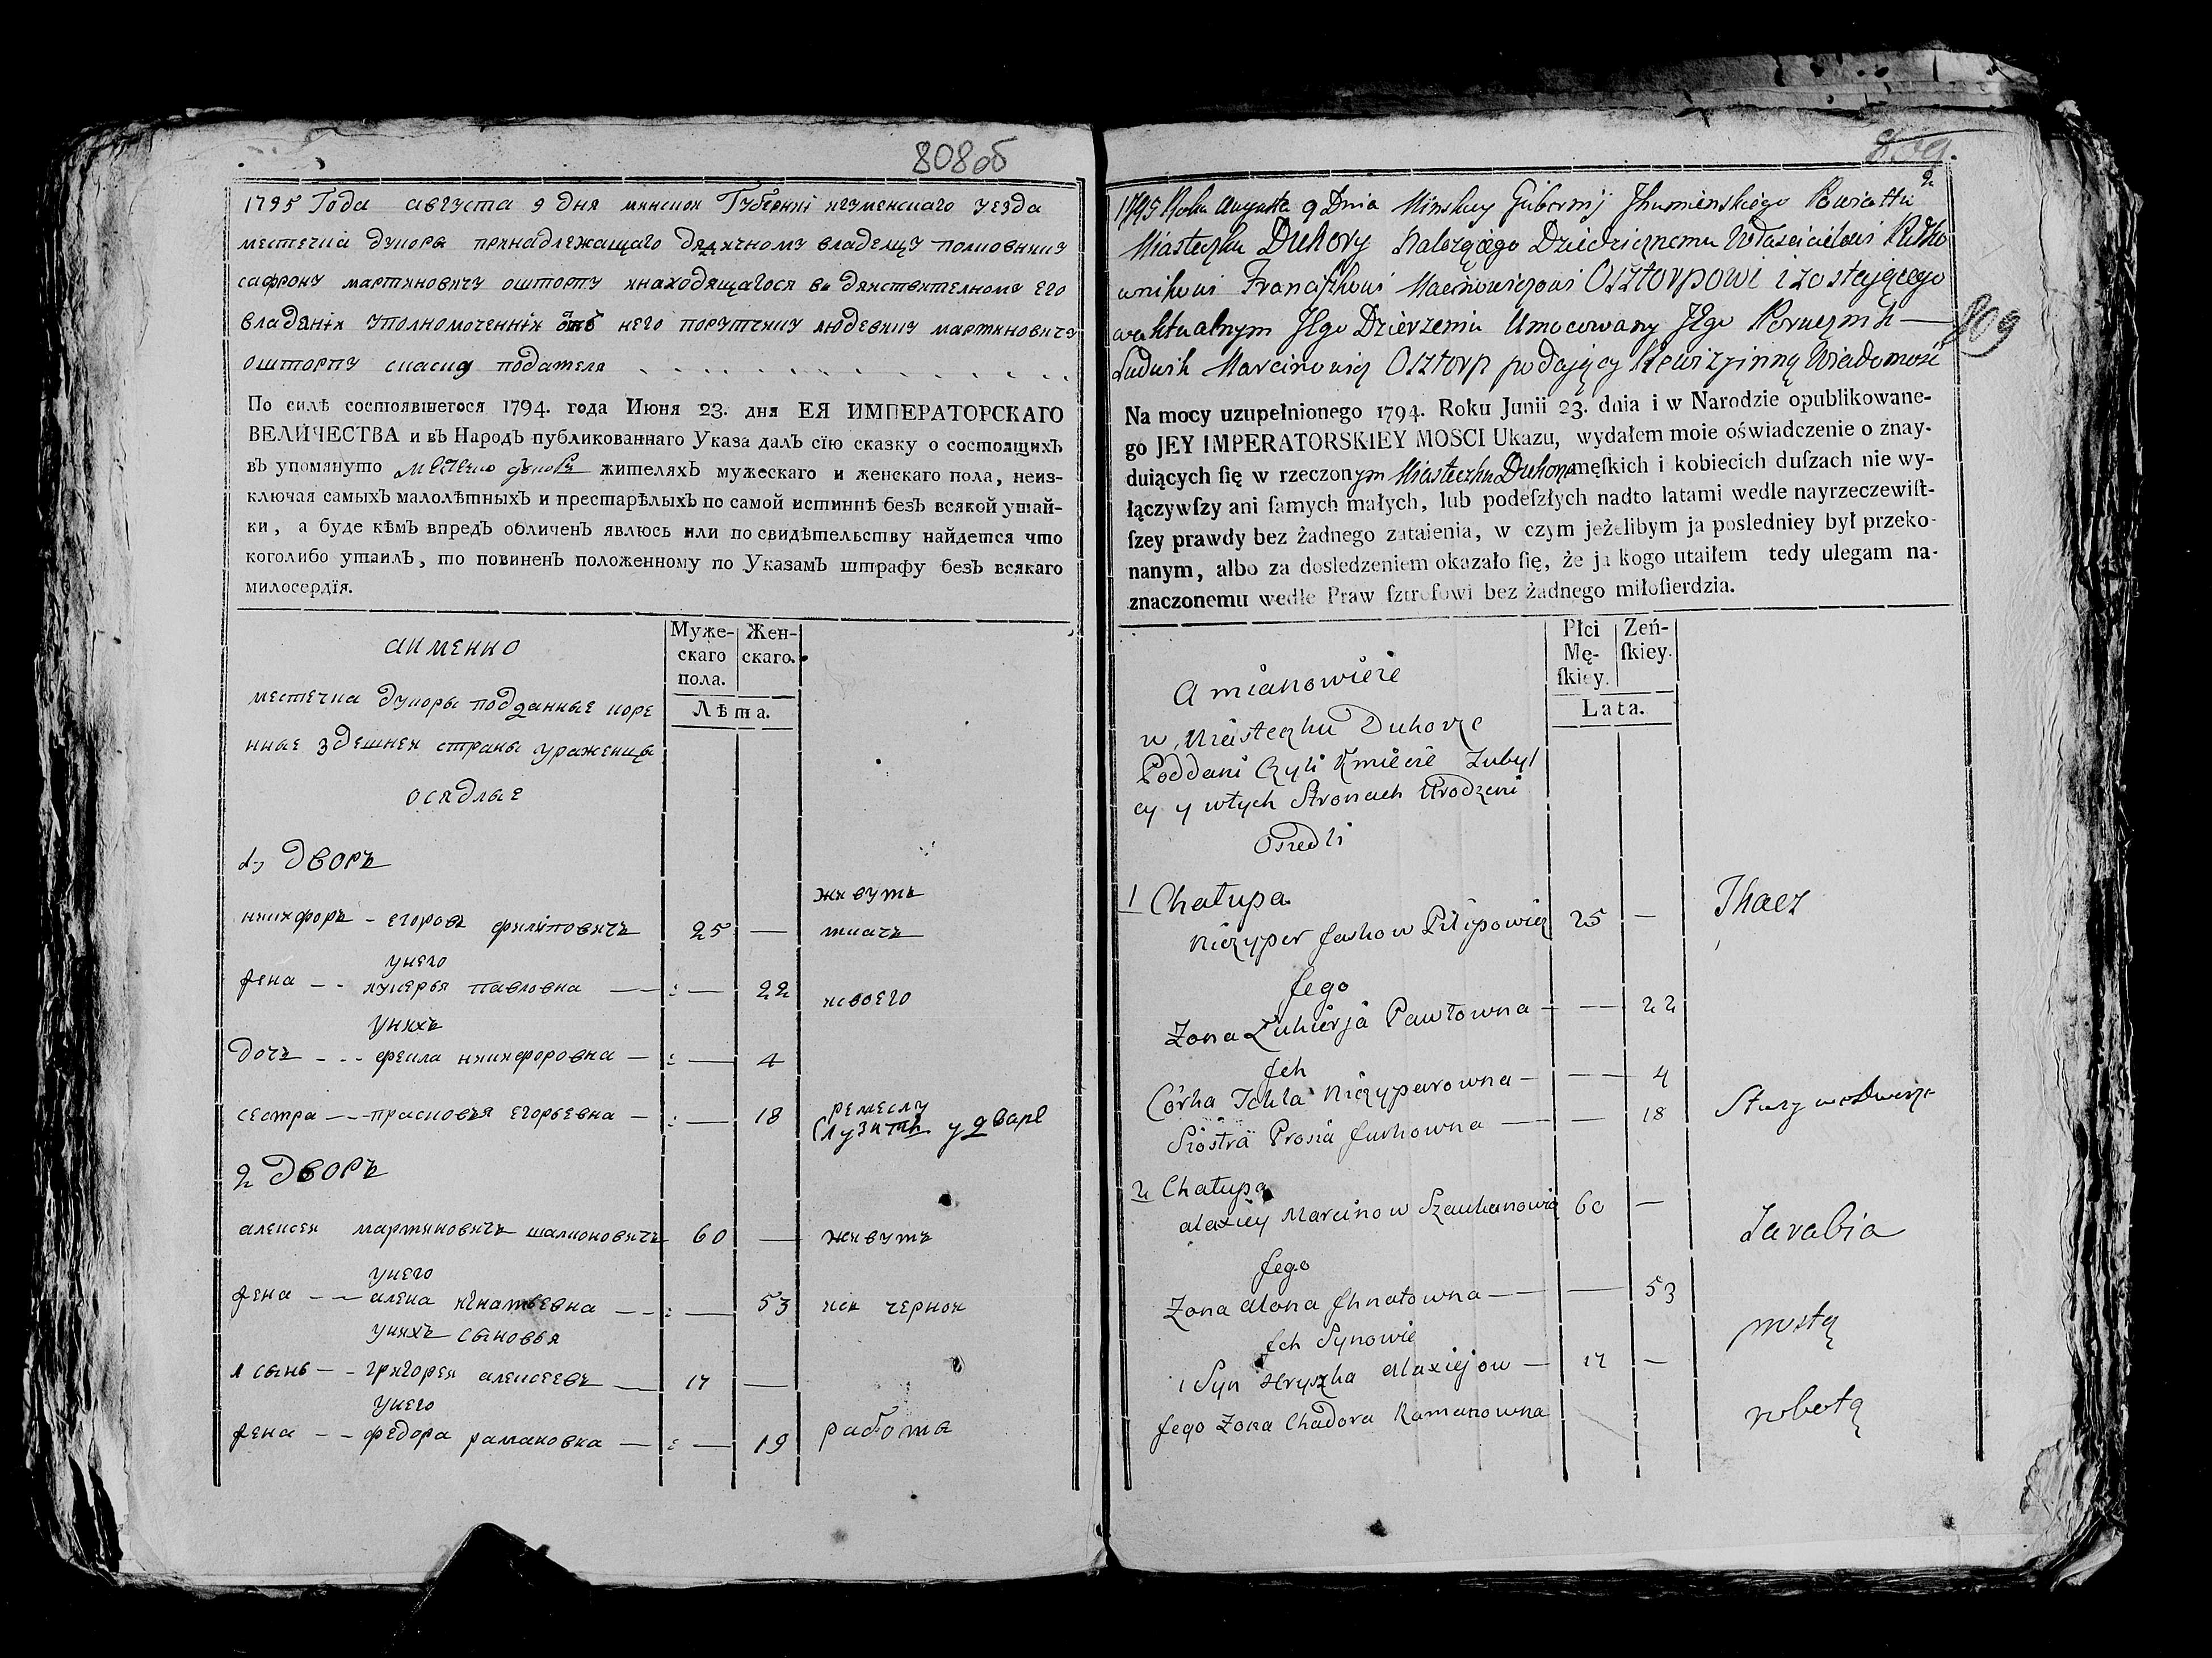 808об
1795 Года августа 9 дня минской Губернıи игуменского уезда
местечка дукоры принадлежащаго дедичному владелцу полковнику
сафрону мартиновичу ошторпу инаходящагося ва действителномъ его
владенıи уполномоченнıй отъ него порутчикъ людевикъ мартиновичъ
ошторпъ скаску подателя . . . . . . . . . . . . . . .
По силѣ состоявшегося 1794. года Июня 23. дня ЕЯ ИМПЕРАТОРСКАГО
ВЕЛИЧЕСТВА и въ Народъ публикованнаго Указа далъ сїю сказку о состоящихъ
въ упомянуто местечко дукоры жителяхъ мужескаго и женскаго пола, неиз-
ключая самыхъ малолѣтныхъ и престарѣлыхъ по самой истиннѣ безъ всякой утай-
ки, а буде кѣмъ впредъ обличенъ явлюсь или по свидѣтельству найдется что
коголибо утаилъ, то повиненъ положенному по Указамъ штрафу безъ всякаго
милосердїя.
аименно
Муже-
скаго
пола.
Жен-
скаго.
Лѣта.
местечка дукоры подданные коре
нные здешней страны ураженцы
оседлые
1, дворъ
никифоръ - егоровъ филиповичъ 25 —
живутъ
ткачъ
унего
жена - - лукерья павловна — : — 22
исвоего
унихъ
дочъ - - - фекла никифоровна — : — 4
сестра - - прасковья егорьевна — : — 18
ремеслу
служитъ у дваре
2 дворъ
алексей мартиновичъ шалконовичъ 60 — живутъ
унего
жена - - алена игнатьевна - - : — 53 изъ черной
унихъ сыновья
1 сынъ - - григорей алексеевъ — 17 —
унего
жена - - федора рамановна — : — 19 работы
809
2
1795 Roku Augusta 9 Dnia Minskiey Gubernij Jhumienskiego Powiattu
Miasteczku Dukory Nalezącego Dziedzicznemu Włascicielowi Pułko
wnikowi Franciszkowi Marcinowiczowi Osztorpowi i zostającego
w aktualnym JEgo Dzierzeniu Umocowany JEgo Porucznik —
Ludwik Marcinowicz Osztorp podający Rewizyinną Wiadomość
809
Na mocy uzupełnionego 1794. Roku Junii 23. dnia i w Narodzie opublikowane-
go JEY IMPERATORSKIEY MOSCI Ukazu, wydałem moie oświadczenie o znay-
duiących ſię w rzeczonym Miasteczku Dukorze męſkich i kobiecich duſzach nie wy-
łączywſzy ani ſamych małych, lub podeſzłych nadto latami wedle nayrzeczewiſt-
ſzey prawdy bez żadnego zataienia, w czym jeżelibym ja posledniey był przeko-
nanym, albo za dosledzeniem okazało ſię, że ja kogo utaiłem tedy ulegam na-
znaczonemu wedle Praw ſztrofowi bez żadnego miłoſierdzia.
Płci
Mę-
ſkiey.
Zeń-
ſkiey.
Lata.
A mianowicie
w Miasteczku Dukorze
Poddani Czyli Kmiecie Zubyl
cy y wtych Stronach Urodzeni
Osiedli
1 Chałupa.
Niczyper Jaskow Pilipowicz 25 — Tkacz
Jego
Zona Lukierja Pawłowna — — 22
Jch
Córka Tekla Niczyparowna — — 4
Siostra Prosia Jurkowna — — 18 Słuzy we dworze
2 Chałupa
Alaxiey Marcinow Szaukanowicz 60 — Zarabia
Jego
Zona Alona Jhnatowna — — 53
Jch Synowie
prostą
1 Syn Hryszka Alaxiejow — 17 —
Jego Zona Chadora Ramanowna
robotą